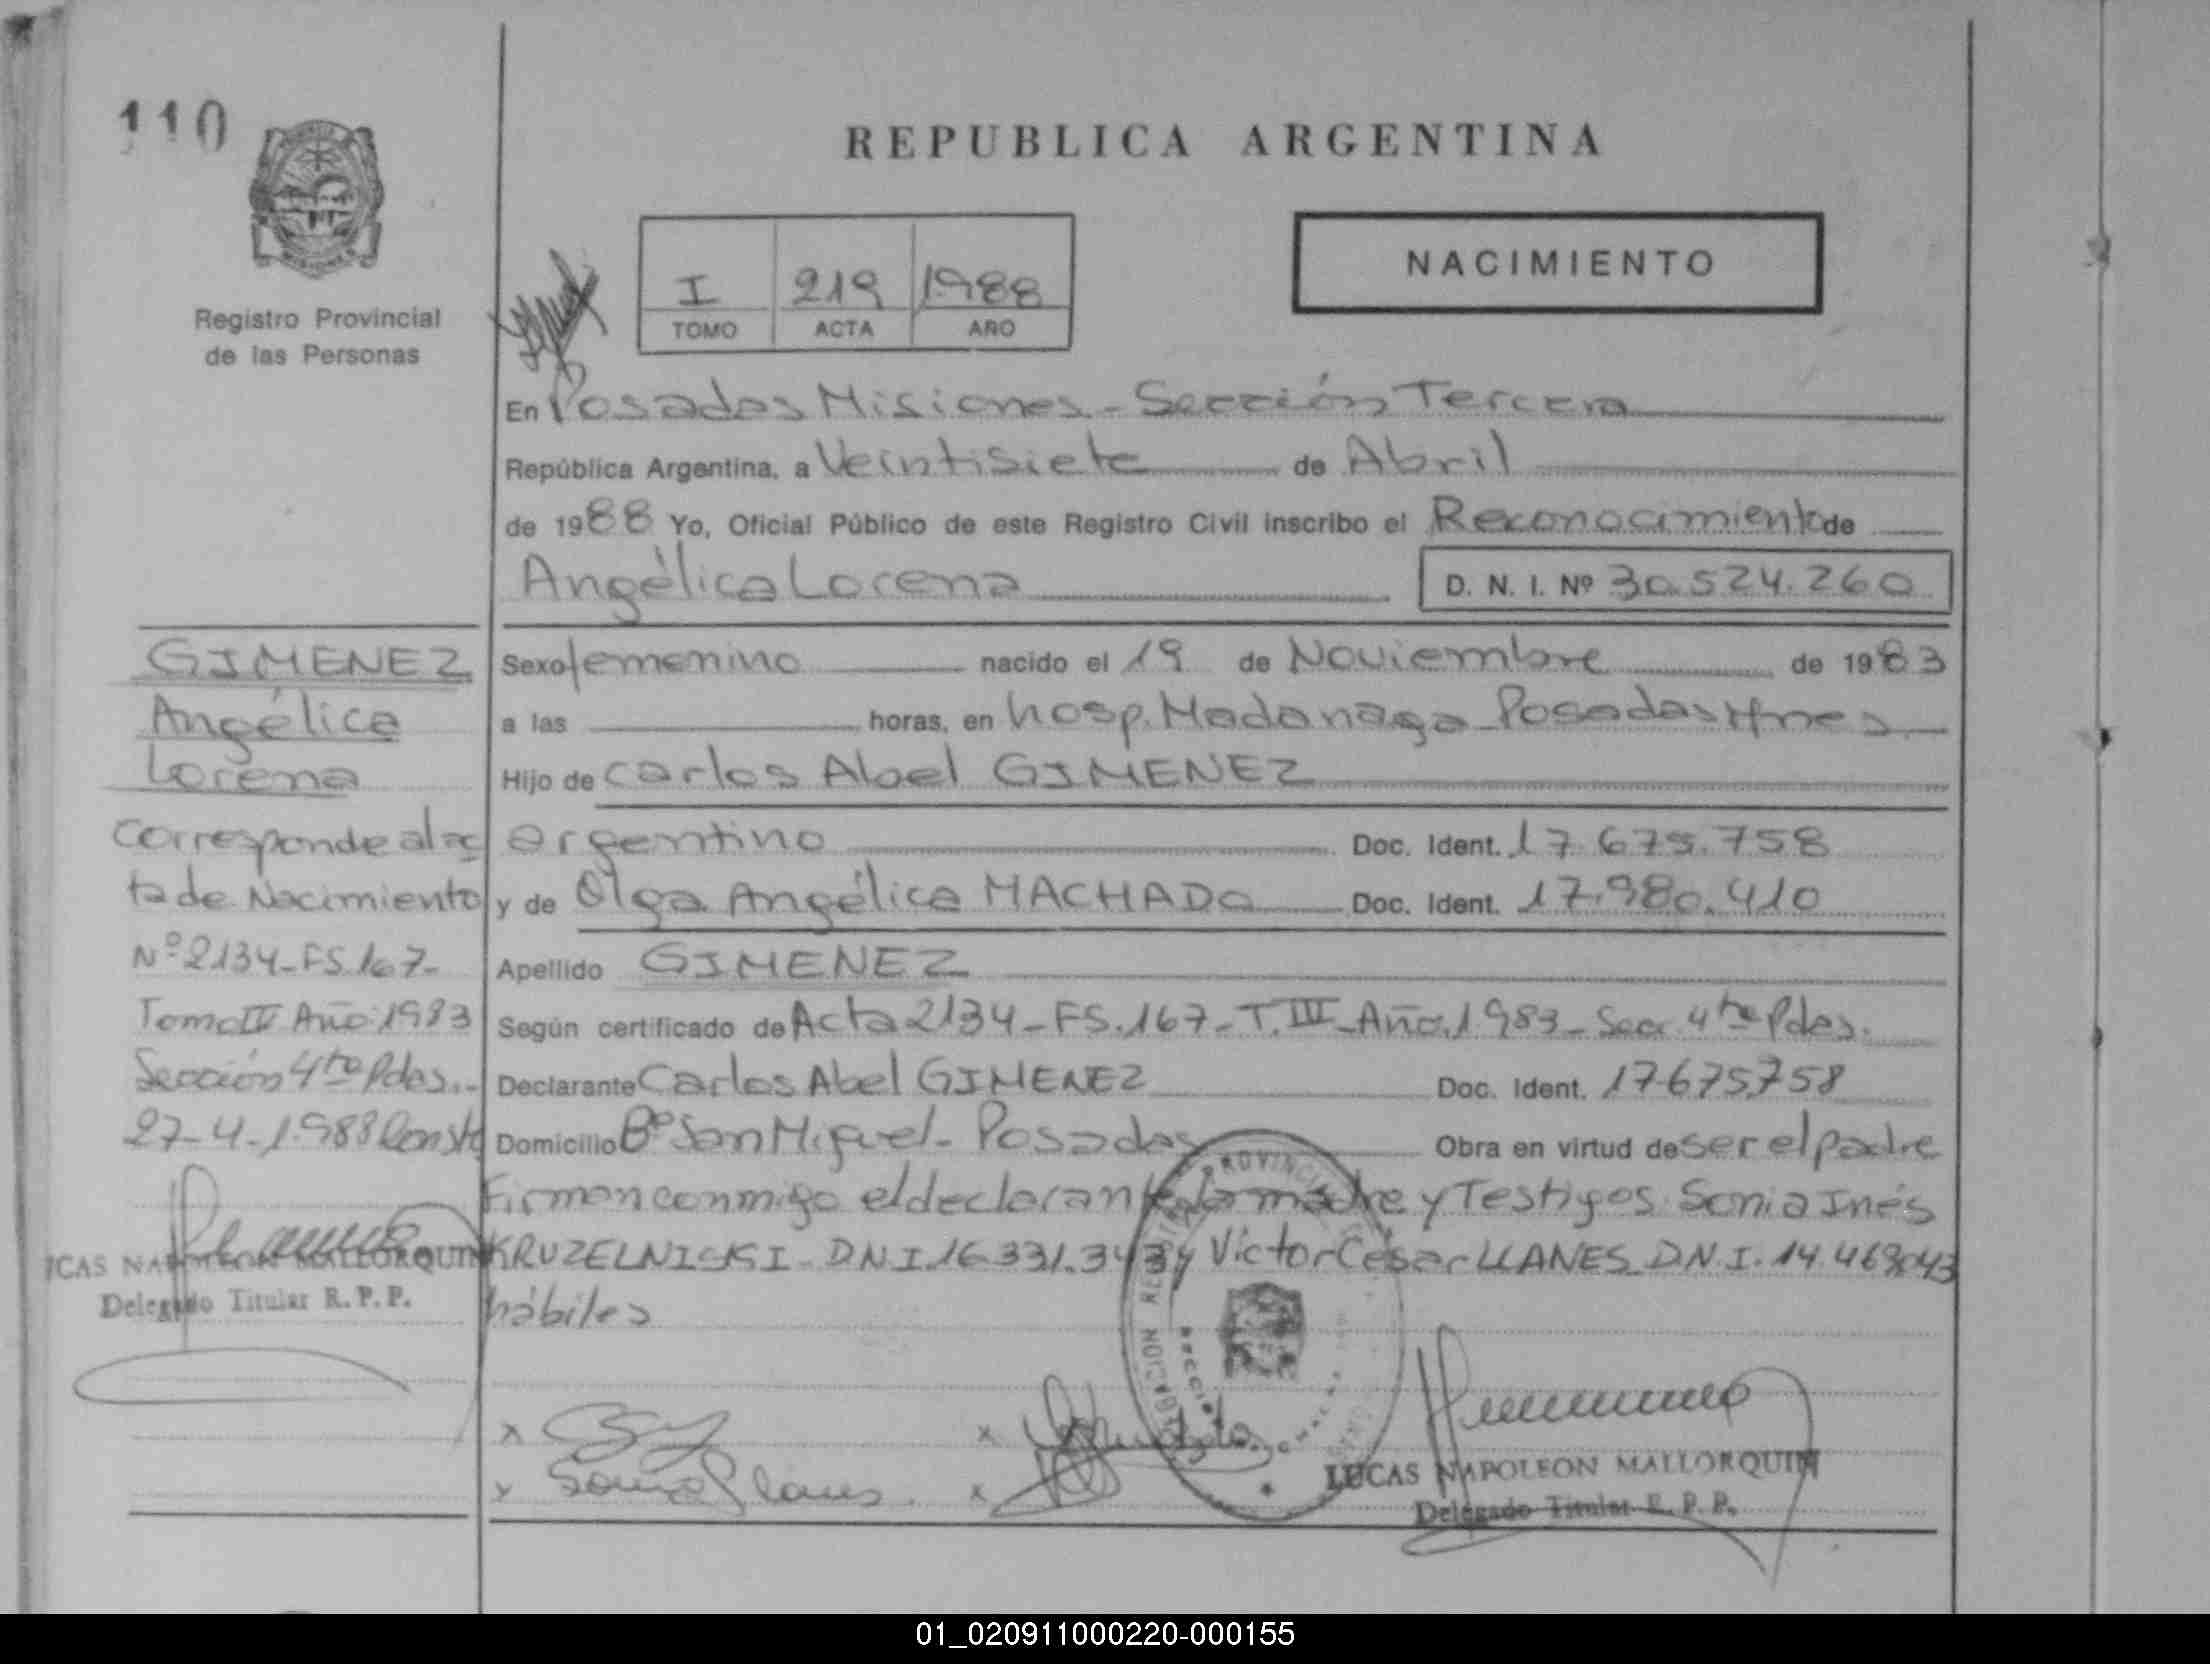 110
REPUBLICA ARGENTINA
Registro Provincial
de las Personas
I 219 1988
TOMO ACTA AÑO
NACIMIENTO
En Posadas Misiones - Sección Tercera
República Argentina, a Veintisiete de Abril
de 1988 Yo, Oficial Público de este Registro Civil inscribo el Reconocimiento de
Angélica Lorena D. N. I. Nº 30.524.260
GIMENEZ
Angélica
Lorena
corresponde al ac
ta de Nacimiento
Nº 2134-FS.167-
Tomo Año 1983
Sección 4ta Pdas.-
27-4-1.988 Conste
LUCAS NAPOLEON MALLORQUIN
Delegado Titular R. P. P.
Sexo femenino nacido el 19 de Noviembre de 1983
a las horas, en hosp. Madariaga Posadas Mnes.
Hijo de Carlos Abel GIMENEZ
argentino Doc. Ident. 17.675.758
y de Olga Angélica MACHADO Doc. Ident. 17.980.410
Apellido GIMENEZ
Según certificado de Acta 2134-FS.167-T.III-Año.1983-Secc. 4ta Pdas.
Declarante Carlos Abel GIMENEZ Doc. Ident. 17.675.758
Domicilio Bº San Miguel - Posadas Obra en virtud de ser el padre
Firman conmigo el declarante, la madre y Testigos Sonia Inés
D.N.I. 16.331.343 y Víctor César LLANES D.N.I. 14.469.043
hábiles
LUCAS NAPOLEON MALLORQUIN
Delegado Titular R. P. P.
01_020911000220-000155